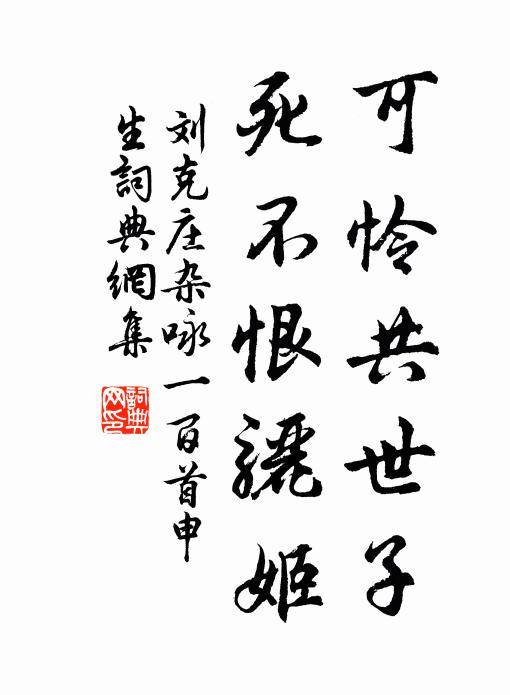 可怜共世子
死不恨骊姬
刘克庄杂咏一百首申
生詞典網集
詞典
网印